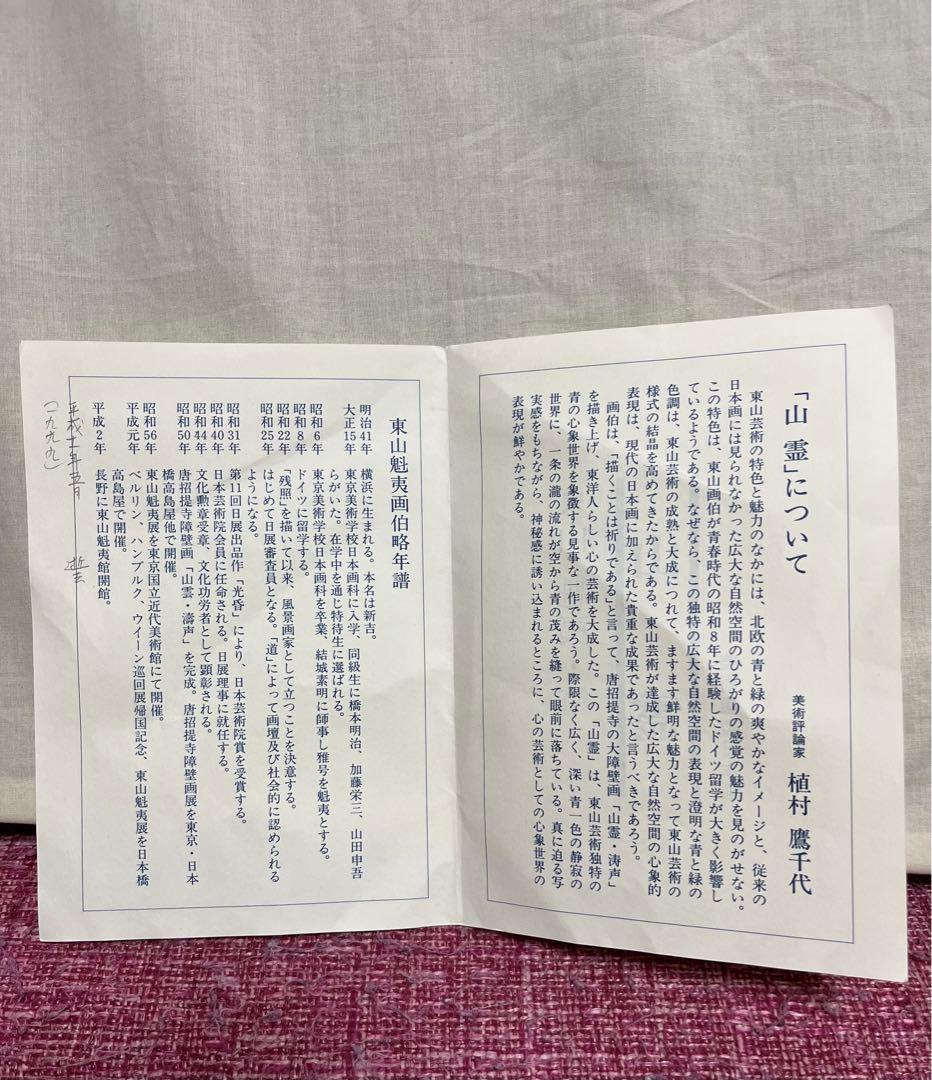 「山霊」について
美術評論家 植村 鷹千代
東山芸術の特色と魅力のなかには、北欧の青と緑の爽やかなイメージと、従来の
日本画には見られなかった広大な自然空間のひろがりの感覚の魅力を見のがせない。
この特色は、東山画伯が青春時代の昭和8年に経験したドイツ留学が大きく影響し
ているようである。なぜなら、この独特の広大な自然空間の表現と澄明な青と緑の
色調は、東山芸術の成熟と大成につれて、ますます鮮明な魅力となって東山芸術の
様式の結晶を高めてきたからである。東山芸術が達成した広大な自然空間の心象的
表現は、現代の日本画に加えられた貴重な成果であったと言うべきであろう。
画伯は、「描くことは祈りである」と言って、唐招提寺の大障壁画「山霊・涛声」
を描き上げ、東洋人らしい心の芸術を大成した。この「山霊」は、東山芸術独特の
青の心象世界を象徴する見事な一作であろう。際限なく広く、深い青一色の静寂の
世界に、一条の瀧の流れが空から青の茂みを縫って眼前に落ちている。真に迫る写
実感をもちながら、神秘感に誘い込まれるところに、心の芸術としての心象世界の
表現が鮮やかである。
東山魁夷画伯略年譜
明治41年 横浜に生まれる。本名は新吉。
大正15年 東京美術学校日本画科に入学、同級生に橋本明治、加藤栄三、山田申吾
らがいた。在学中を通じ特待生に選ばれる。
昭和6年 東京美術学校日本画科を卒業、結城素明に師事し雅号を魁夷とする。
昭和8年 ドイツに留学する。
昭和22年 「残照」を描いて以来、風景画家として立つことを決意する。
昭和25年 はじめて日展審査員となる。「道」によって画壇及び社会的に認められる
ようになる。
昭和31年 第11回日展出品作「光昏」により、日本芸術院賞を受賞する。
昭和40年 日本芸術院会員に任命される。日展理事に就任する。
昭和44年 文化勲章受章、文化功労者として顕彰される。
昭和50年 唐招提寺障壁画「山雲・濤声」を完成。唐招提寺障壁画展を東京・日本
橋高島屋他で開催。
昭和56年 東山魁夷展を東京国立近代美術館にて開催。
平成元年 ベルリン、ハンブルク、ウイーン巡回展帰国記念、東山魁夷展を日本橋
高島屋で開催。
平成2年 長野に東山魁夷館開館。
平成十一年五月 逝去
(一九九九)